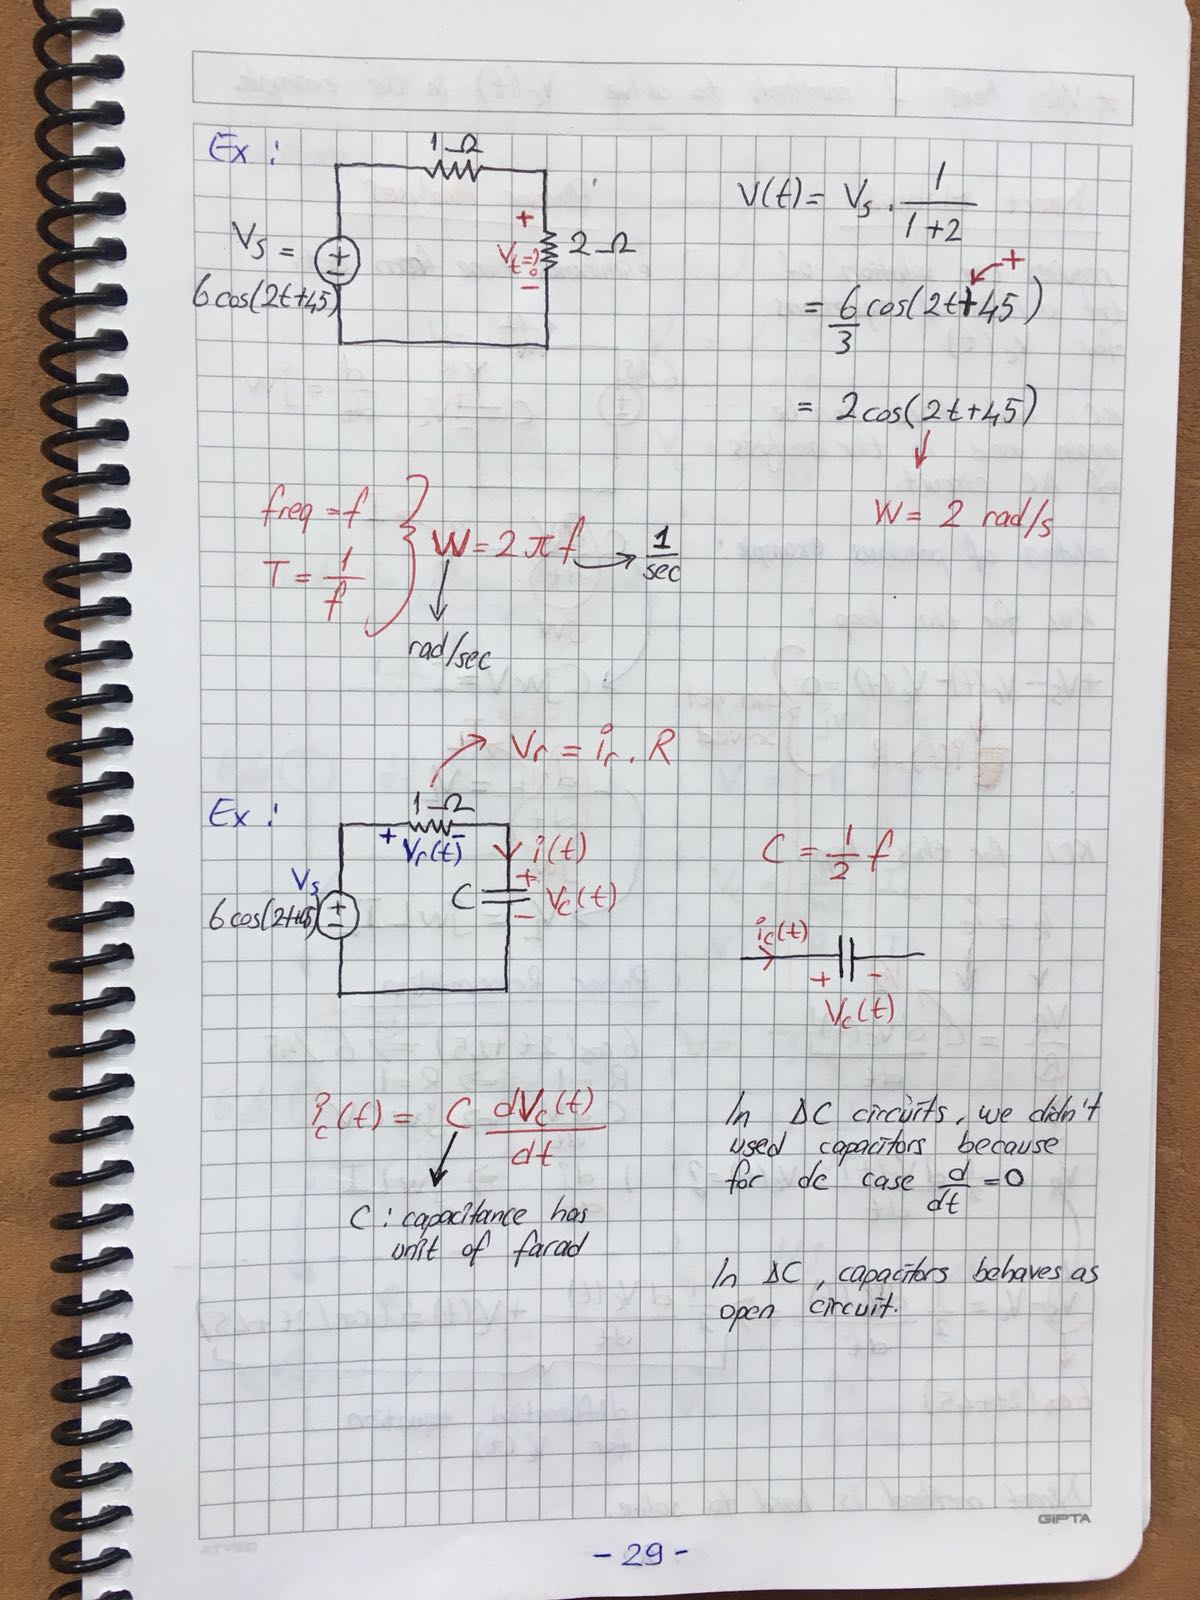 Ex :
1 Ω
Vs =
6 cos(2t+45)
+
Vt=?
-
2 Ω
V(t) = Vs . 1/(1+2)
+
= 6/3 cos(2t+45)
= 2cos(2t+45)
W = 2 rad/s
freq = f
T = 1/f
W = 2πf → 1/sec
rad/sec
Vr = ir . R
Ex :
1 Ω
+ Vr(t) -
i(t)
Vs
6 cos(2t+45)
C
+
Vc(t)
-
C = 1/2 f
ic(t)
+ -
Vc(t)
ic(t) = C dVc(t)/dt
C : capacitance has
unit of farad
In DC circuits, we didn't
used capacitors because
for dc case d/dt = 0
In DC, capacitors behaves as
open circuit.
GIPTA
- 29 -